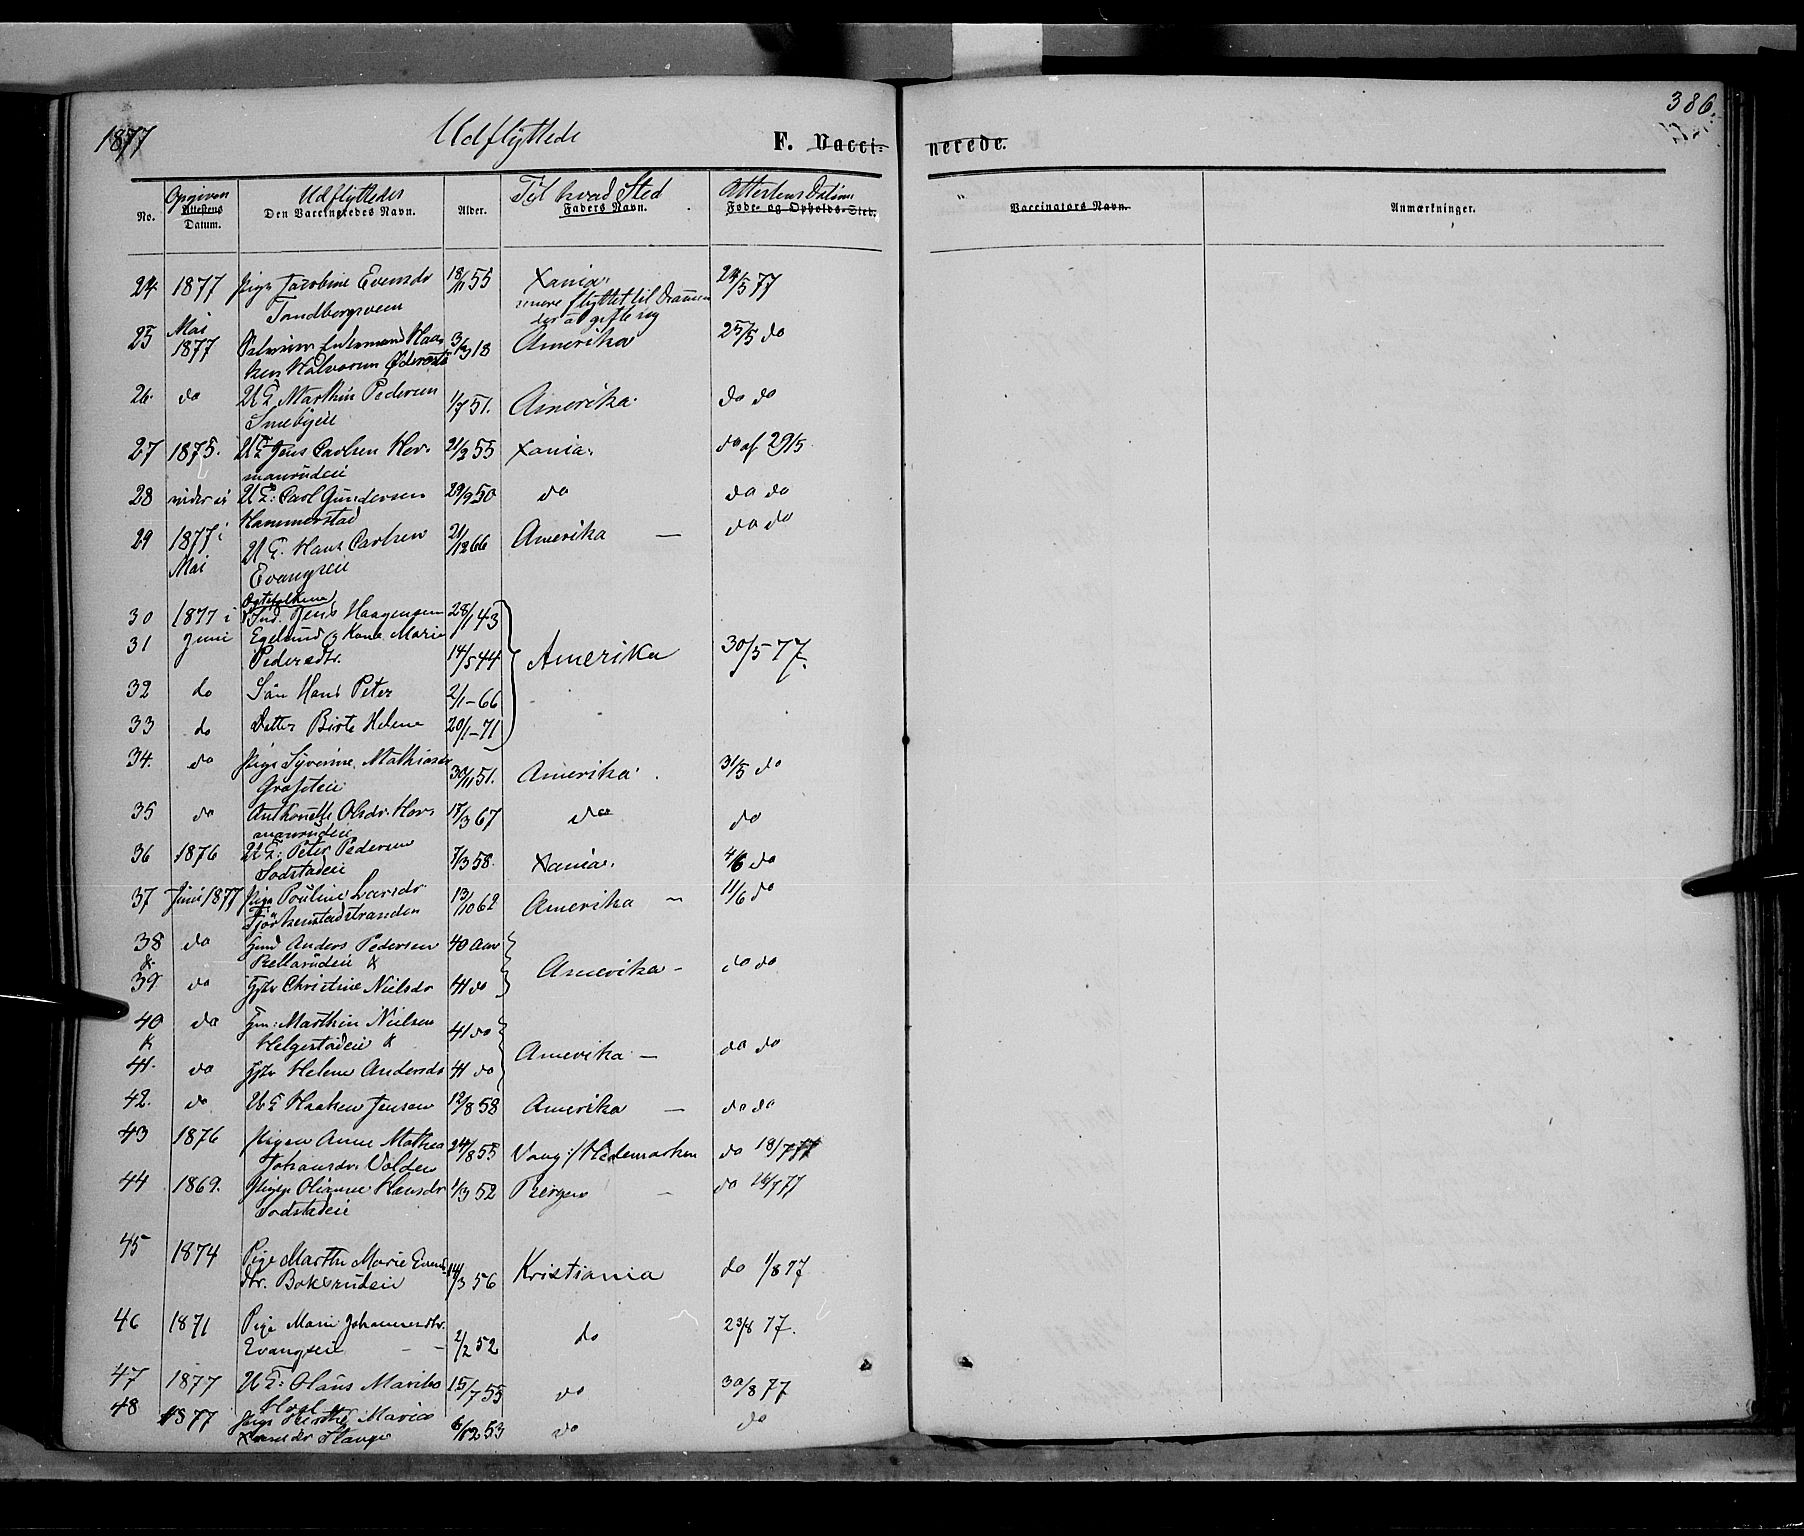 386.
1877 Udflyttede F. Vacci- nerede.
Opgiven Udflyttedes Til hvad Sted Attestens Datum
No. Attestens Datum. Den Vaccineredes Navn. Alder. Faders Navn. Føde- og Opholds-Sted. Vaccinators Navn. Anmærkninger.
24 1877 Pige Jacobine Evensdr 18/11 55 Xania. 24/5 77
Tandbergsveen senere flyttet til Drammen
der at gifte sig
25 Mai 1877 Haa- 3/3 18 Amerika 25/5 do
ken Halvorsen
26. do UG Marthin Pedersen 1/7 51. Amerika. do do
Smebyeie
27 1875. UG Jens Carlsen Her- 21/2 55 Xania. do af 29/5
manrudeie
28 UG: Carl Gundersen 29/9 50 do do do
Hammerstad
29 1877 i Mai UG. Hans Carlsen 21/12 66 Amerika — do do
Evangseie
Ægtefolkene
30 1877 i Ind. Jens Haagensen 28/1 43
31 Juni Egelund og Kone Marie
Pedersdtr. 14/5 44 Amerika 30/5 77.
32 do Sön Hans Peter 2/1-66
33 do Datter Birte Helene 20/1-71
34. do Pige Syverine Mathiasdr 30/11 51. Amerika. 31/5 do
35 do Anthonette Olsdr. Her- 17/3 67 do do
manrudeie
36 1876 UG: Peter Pedersen 7/3 58. Xania. 4/6 do
Sodstadeie
37 Juni 1877 Pige Pouline Larsdr. 13/10 62 Amerika — 11/6 do
38 do Anders Pedersen 40 Aar
& &
39 do Christine Nielsdr 41 do Amerika — do do
40 do Marthin Nielsen 41 do
& Helgestadeie &
41. do Helene Andersdr 41 do Amerika — do do
42. do UG Haaken Jensen 12/8 58 Amerika — do do
43 1876 Pigen Anne Mathea 24/8 55 Vang i/ Hedemarken do 18/7 77
Johansdr. Volden
44 1869. Pigen Olianne Hansdr 1/3 52 Bergen — do 77
Sodstadeie
45 1874 Pige Marthe Marie Evens-
dtr. Bakkerudeie 14/3 56 Kristiania do 1/8 77
46 1871 Pige Marie Johannesdtr. 2/2 52 do 23/8 77.
Evangseie
47 1877 UG: Olaus 15/7 55 do 30/8 77
48 1877 Pige Birthe Marie 6/12 53 do do
Stange